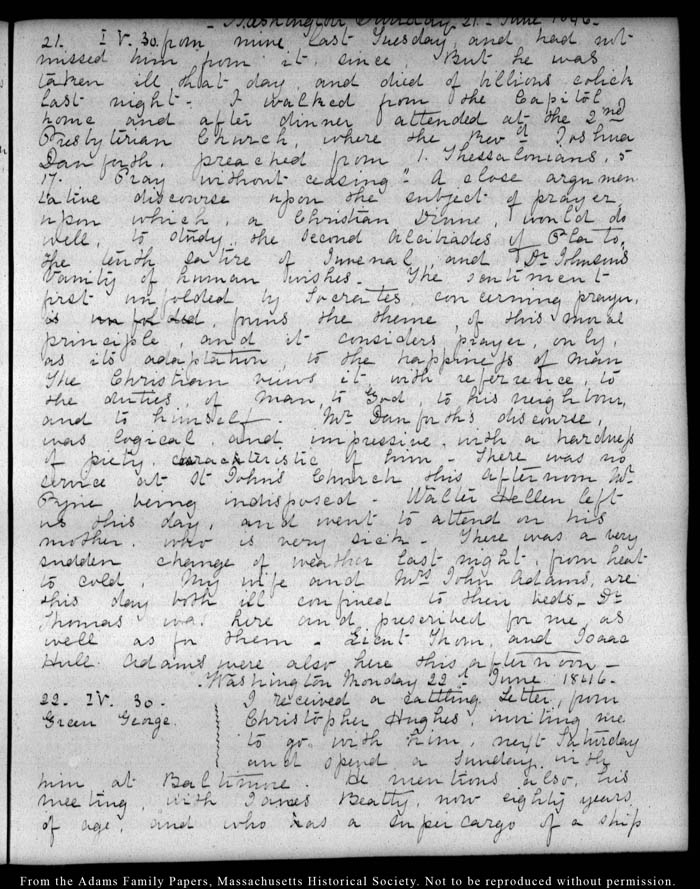 - Washington Sunday 21. June 1846.-
21. IV. 30. from mine last Tuesday, and had not
missed him from it since. But he was
taken ill that day and died of billious cholick
last night - I walked from the Capitol
home and after dinner attended at the 2nd
Presbyterian Church, where the Revd Joshua
Danforth, preached from 1. Thessalonians, 5
17. "Pray without ceasing" A close argumen
tative discourse upon the subject of prayer,
upon which, a Christian Divine, would do
well, to study, the second Alcibiades of Plato,
the tenth satire of Juvenal, and Dr Johnson's
Vanity of human wishes. The sentiment
first unfolded by Socrates, concerning prayer,
is unfolded, forms the theme, of this moral
principle, and it considers prayer, only,
as its adaptation, to the happiness of man
The Christian views it with reference, to
the duties, of Man, to God, to his neighbour,
and to himself. Mr Danforth's discourse,
was logical and impressive, with a hardness
of piety, characteristic of him - There was no
service at St John's Church this afternoon Mr
Pyne being indisposed - Walter Hellen left
us this day, and went to attend on his
mother. who is very sick - There was a very
sudden change of weather last night, from heat
to cold. My wife and Mrs John Adams, are
this day both ill confined to their beds. Dr
Thomas was here and prescribed for me as
well as for them - Lieut Thom, and Isaac
Hull Adams were also here this afternoon -
Washington Monday 22d June 1846.
22. IV. 30. I received a rattling Letter, from
Green George. Christopher Hughes, inviting me
to go with him, next Saturday
and spend a Sunday with
him at Baltimore. He mentions also, his
meeting, with James Beatty, now eighty years
of age, and who was a supercargo of a ship
From the Adams Family Papers, Massachusetts Historical Society. Not to be reproduced without permission.